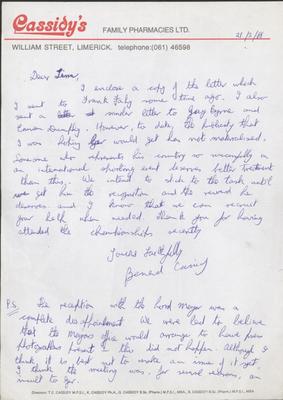 Cassidy's
FAMILY PHARMACIES LTD.
21/2/88
WILLIAM STREET, LIMERICK. telephone:(061) 46598
Dear
I enclose a copy of the letter which
I sent to Frank Fahy some time ago. I also
sent a similar letter to Gay Byrne and
Eamon Dunphy. However, to date the publicity that
I was hoping Ger would get has not materialised.
Someone who represents his country so successfully in
an international sporting event deserves better treatment
than this. We intend to stick to the task until
we get him the recognition and the reward he
deserves and I know that we can request
your help when needed. Thank you for having
attended the championships recently
Yours Faithfully
Bernard Cassidy
P.S. The reception with the Lord Mayor was a
complete disappointment. We were led to believe
that the Mayors office would arrange to have press
photographers present. This did not happen. Although I
think, it is best not to make an issue of it yet,
I think the meeting was, for several reasons, an
insult to Ger.
Directors: T.C. CASSIDY M.P.S.I., K. CASSIDY Ph.A., G. CASSIDY B.Sc. (Pharm.) M.P.S.I., MBA., B. CASSIDY B.Sc. (Pharm.) M.P.S.I., MBA